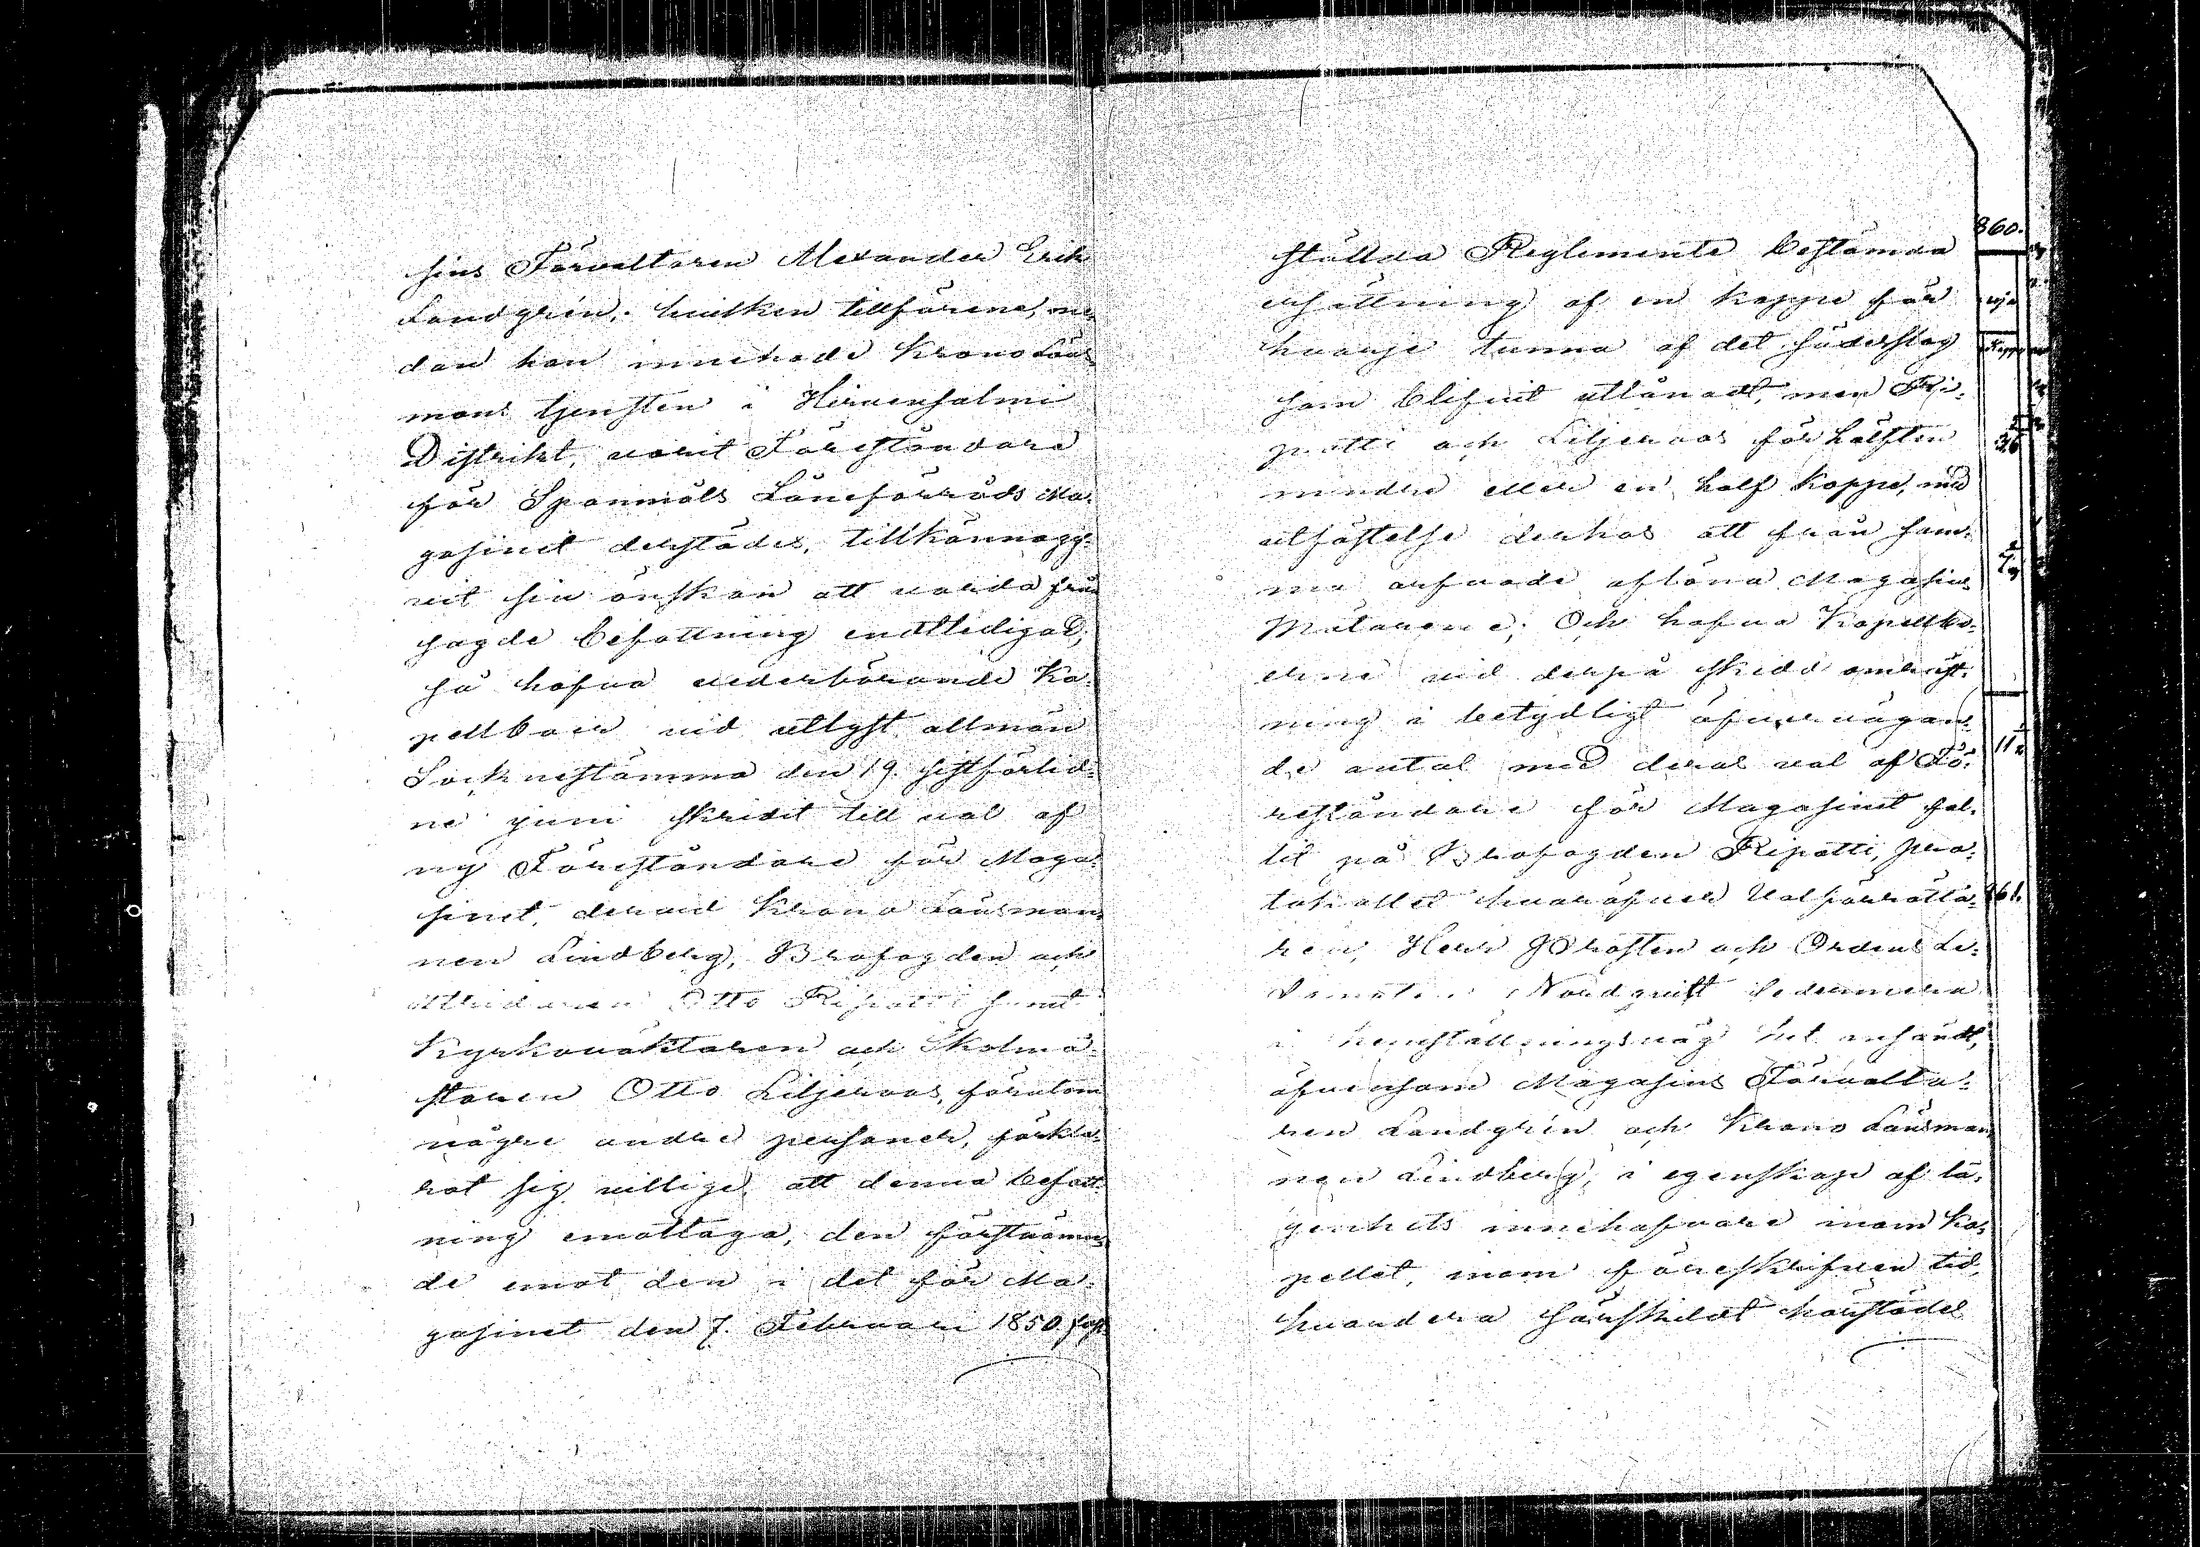 sins Förvaltaren Alexander Erik
Landgrén, hvilken tillförene, me-
dan han innehade Kronoläns
mans tjensten i Hirvensalmi
Distrikt, varit Föreståndare
för Spanmåls Låneförråds Ma-
gasinet derstädes, tillkännagif-
vit sin önskan att varda från
sagde befattning entledigad,
så hafva vederbörande Ka-
pellboer vid utlyst allmän
Socknestämma den 19. sistförlid-
ne juni skridit till val af
ny Föreståndare för Maga-
sinet, dervid Krono Länsman-
nen Lindberg, Brofogden och
Otto Ripatti samt
Kyrkovaktaren och Skolmä-
staren Otto Liljeroos, förutom
några andre personer, förkla-
rat sig villige att denna befatt-
ning emottaga, den förstnämn-
de emot den i det för Ma-
gasinet den 7. Februari 1850 fast-
ställda Reglemente bestämda
ersättning af en kappe för
hvarje tunna af det sädesslag
som blifvit utlånadt, men Ri-
patti och Liljeroos för hälften
mindre eller en half kappe, med
utfästelse derhos att från sam-
ma arfvode aflöna Magasins
Mätarene; Och hafva Kapellbo-
erne vid derpå skedd omröst-
ning i betydligt öfvervägan-
de antal med deras val af Fö-
reståndare för Magasinet fal-
lit på Brofogden Ripatti, pro-
tokollet hvaröfver Valförrätta-
ren, Herr Prosten och Ordens Le-
damoten Nordqvist sedermera
i hemställningsväg hit insändt,
äfvensom Magasins Förvalta-
ren Landgrén och Krono Länsman
nen Lindberg, i egenskap af lä-
genhets innehafvare inom Ka-
pellet, inom föreskrifven tid,
hvardera särskildt härstädes
860.
36
11
61.